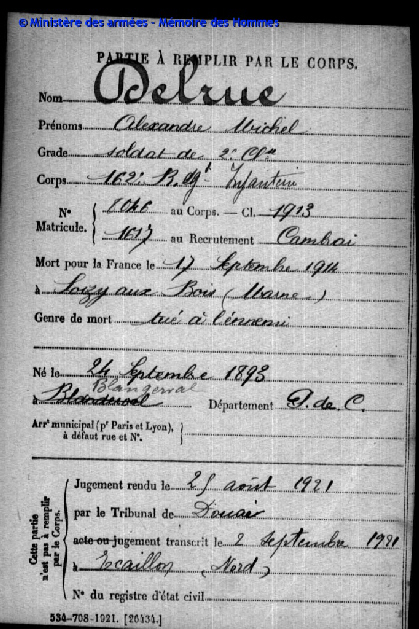 © Ministère des armées - Mémoire des Hommes
PARTIE À REMPLIR PAR LE CORPS.
Nom Delrue
Prénoms Alexandre Michel
Grade soldat de 2e Cl
Corps 162e R. d'Infanterie
N° Matricule. au Corps. — Cl. 1913
1617 au Recrutement Cambrai
Mort pour la France le 17 Septembre 1914
à Soizy aux Bois (Marne)
Genre de mort tué à l'ennemi
Né le 24 Septembre 1893
Blangerval
à Blanderval Département P. de C.
Arrt municipal (pr Paris et Lyon),
à défaut rue et N°.
Cette partie n'est pas à remplir par le Corps.
Jugement rendu le 25 août 1921
par le Tribunal de Douai
acte ou jugement transcrit le 2 Septembre 1921
à Ecaillon (Nord)
N° du registre d'état civil
534-708-1921. [26434.]